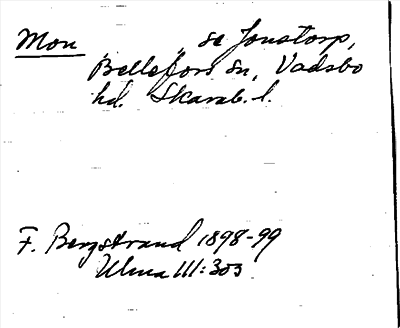 Mon „ se Jonstorp,
Bällefors sn, Vadsbo
hd. Skarab. l.
F. Bergstrand 1898-99
Ulma 111:303